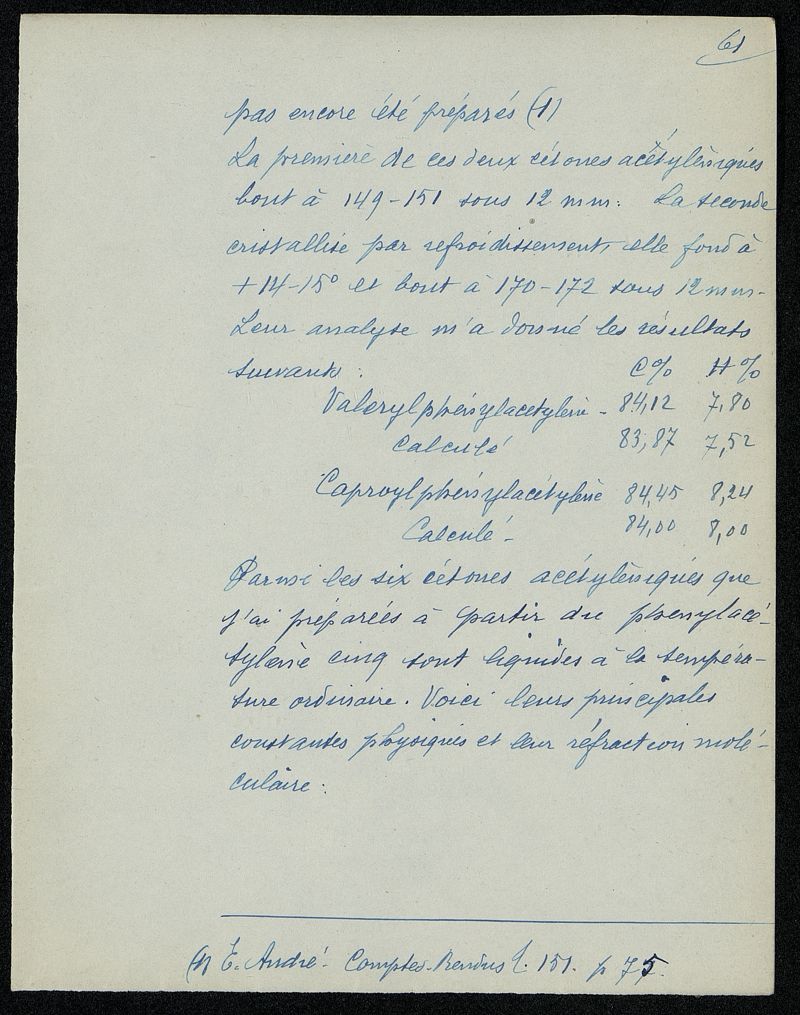 61
pas encore été préparés (1)
La première de ces deux cétones acétyléniques
bout à 149-151 sous 12 mm. La seconde
cristallise par refroidissement, elle fond à
+14-15° et bout à 170-172 sous 12 mm-
Leur analyse m'a donné les résultats
suivants : C% H%
Valerylphénylacetylène - 84,12 7,80
Calculé 83,87 7,52
Caproylphénylacétylène 84,45 8,24
Calculé - 84,00 8,00
Parmi les six cétones acétyléniques que
j'ai préparées à partir du phenylacé-
tylène cinq sont liquides à la tempéra-
ture ordinaire. Voici leurs principales
constantes physiques et leur réfraction molé-
culaire :
(1) E. André - Comptes-Rendus t. 151. p 75.